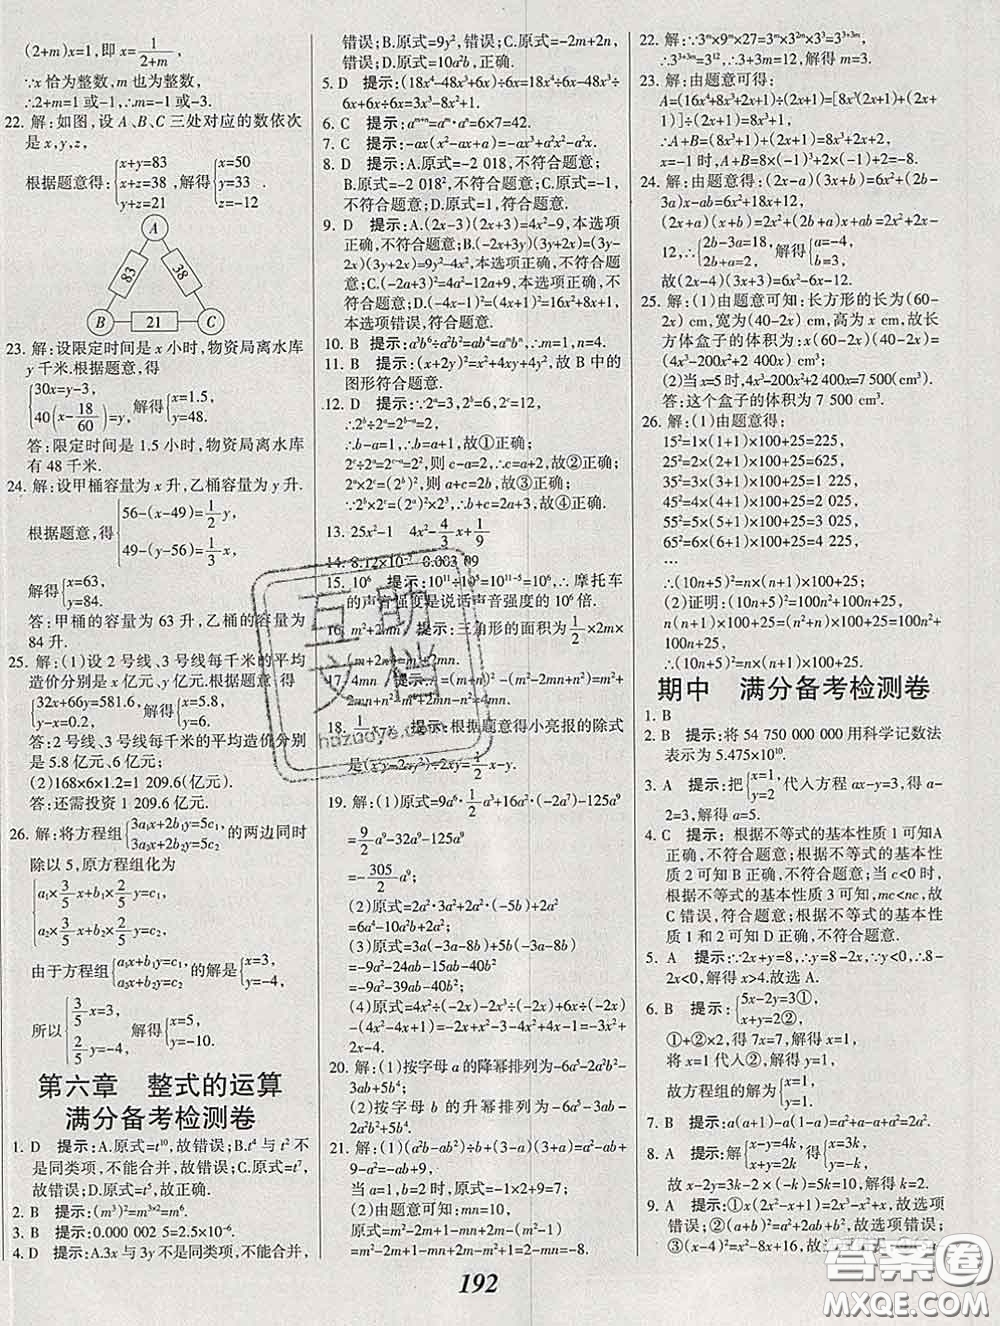 (2+m)x=1,即 x=1/(2+m),
∵x 恰为整数,m 也为整数,
∴2+m=1 或-1,∴m=-1 或-3.
22. 解:如图,设 A、B、C 三处对应的数依次
是 x,y,z,
根据题意得:{x+y=83 x+z=38 y+z=21,解得{x=50 y=33 z=-12.
A
83 38
B 21 C
23. 解:设限定时间是 x 小时,物资局离水库
y 千米.根据题意,得
{30x=y-3, 40(x-18/60)=y, 解得{x=1.5, y=48.
答:限定时间是 1.5 小时,物资局离水库
有 48 千米.
24. 解:设甲桶容量为 x 升,乙桶容量为 y 升.
根据题意,得{56-(x-49)=1/2 y, 49-(y-56)=1/3 x,
解得{x=63, y=84.
答:甲桶的容量为 63 升,乙桶的容量为
84 升.
25. 解:(1)设 2 号线、3 号线每千米的平均
造价分别是 x 亿元、y 亿元.根据题意 得
{32x+66y=581.6, y-x=0.2, 解得{x=5.8, y=6.
答:2 号线、3 号线每千米的平均造价分别
是 5.8 亿元、6 亿元;
(2)168×6×1.2=1 209.6(亿元).
答:还需投资 1 209.6 亿元.
26. 解:将方程组{3a₁x+2b₁y=5c₁, 3a₂x+2b₂y=5c₂ 的两边同时
除以 5,原方程组化为
{a₁×3/5 x+b₁×2/5 y=c₁, a₂×3/5 x+b₂×2/5 y=c₂,
由于方程组{a₁x+b₁y=c₁, a₂x+b₂y=c₂ 的解是{x=3, y=-4,
所以{3/5 x=3, 2/5 y=-4, 解得{x=5, y=-10.
第六章 整式的运算
满分备考检测卷
1. D 提示:A.原式=t¹⁰,故错误;B.t⁴ 与 t² 不
是同类项,不能合并,故错误;C.原式=t⁸,
故错误;D.原式=t⁵,故正确.
2. B 提示:(m³)²=m³ˣ²=m⁶.
3. B 提示:0.000 002 5=2.5×10⁻⁶.
4. D 提示:A.3x 与 3y 不是同类项,不能合并,
错误;B.原式=9y²,错误;C.原式=-2m+2n,
错误;D.原式=10a²b,正确.
5. D 提示:(18x⁴-48x³+6x)÷6x=18x⁴÷6x-48x³÷
6x+6x÷6x=3x³-8x²+1.
6. C 提示:aᵐ⁺ⁿ=aᵐ·aⁿ=6×7=42.
7. C 提示:-ax(x²-ax+a)=-ax³+a²x²-a²x.
8. D 提示:A.原式=-2 018,不符合题意;
B.原式=-2 018²,不符合题意;C.原式=-1,
不符合题意;D.原式=1,符合题意.
9. D 提示:A.(2x-3)(2x+3)=4x²-9,本选项
正确,不符合题意;B.(-2x+3y)(3y+2x)=(3y)²
-(2x)²=9y²-4x²,本选项正确,不符合题意;
C.(-2a+3)²=4a²-12a+9,本选项正确,不符
合题意;D.(-4x-1)²=(4x+1)²=16x²+8x+1,
本选项错误,符合题意.
10. B 提示:a³b⁶÷a²b²=ab⁴=aᵐbⁿ,∴m=1,n=4.
11. B 提示:(x+2y)²=x²+4xy+4y²,故 B 中的
图形符合题意.
12. D 提示:∵2ᵃ=3,2ᵇ=6,2ᶜ=12,
∴2ᵇ÷2ᵃ=2ᵇ⁻ᵃ=2,
∴b-a=1,∴b=a+1,故①正确;
2ᶜ÷2ᵃ=2ᶜ⁻ᵃ=2²,则 c-a=2,故②正确;
2ᵃ×2ᶜ=(2ᵇ)²,则 a+c=2b,故③正确;
2ᵇ×2ᶜ=(2ᵃ)²×2³,∴b+c=2a+3,故④正确.
13. 25x²-1 4x²-4/3 x+1/9
14. 8.12×10⁻² 0.003 09
15. 10⁶ 提示:10¹¹÷10⁵=10¹¹⁻⁵=10⁶,∴摩托车
的声音强度是说话声音强度的 10⁶ 倍.
16. m²+2mn 提示:三角形的面积为1/2×2m×
(m+2n)=m²+2mn.
17. 4mn 提示:A=(m+n)²-(m-n)²=m²+2mn+n²
-m²+2mn-n²=4mn.
18. 提示:根据题意得小亮报的除式
是(x²y-2xy²)÷2xy=1/2 x-y.
19. 解:(1)原式=9a⁶·1/2a³+16a²·(-2a⁷)-125a⁹
=9/2 a⁹-32a⁹-125a⁹
=-305/2 a⁹;
(2)原式=2a²·3a²+2a²·(-5b)+2a²
=6a⁴-10a²b+2a²;
(3)原式=3a(-3a-8b)+5b(-3a-8b)
=-9a²-24ab-15ab-40b²
=-9a²-39ab-40b²;
(4)原式=4x²÷(-2x)-2x³÷(-2x)+6x÷(-2x)
-(4x²-4x+x-1)=-2x+x²-3-4x²+4x-x+1=
-3x²+x-2.
20. 解:(1)按字母 a 的降幂排列为-6a⁵-2a³b²+
3ab³+5b⁴;
(2)按字母 b 的升幂排列为-6a⁵-3ab-
2a³b²+5b⁴.
21. 解:(1)(a²b-ab²)÷b+(3-a)(3+a)=a²-ab+
9-a²=-ab+9;
当 a=1,b=2 时,原式=-1×2+9=7;
(2)由题意可知:mn=10,
原式=m²-2m+1-mn-2m-m²+2m
=m²-2m-1-mn-2m-m²+4m=-1-mn=-11.
22. 解:∵3ᵐ×9ᵐ×27=3ᵐ×3²ᵐ×3³=3³⁺³ᵐ,
∴3³⁺³ᵐ=3¹²,∴3+3m=12,解得 m=3.
23. 解:由题意可得:
A=(16x⁴+8x³+2x+1)÷(2x+1)=[8x³(2x+1)+(2x+
1)]÷(2x+1)=8x³+1,
∴A+B=(8x³+1)+(2x+1)=8x³+2x+2,
x=-1 时,A+B=8×(-1)³+2×(-1)+2=-8.
24. 解:由题意得:(2x-a)(3x+b)=6x²+(2b-
3a)x-ab=6x²+18x+12,
(2x+a)(x+b)=2x²+(2b+a)x+ab=2x²+2x-
12,∴{2b-3a=18, 2b+a=2, 解得{a=-4, b=3,
故(2x-4)(3x+3)=6x²-6x-12.
25. 解:(1)由题意可知:长方形的长为(60-
2x) cm,宽为(40-2x) cm,高为 x cm,故长
方体盒子的体积为:x(60-2x)(40-2x)=
(4x³-200x²+2 400x) cm³;
(2)当 x=5 时,4x³-200x²+2 400x=7 500(cm³).
答:这个盒子的体积为 7 500 cm³.
26. 解:(1)由题意得:
15²=1×(1+1)×100+25=225,
25²=2×(2+1)×100+25=625,
35²=3×(3+1)×100+25=1 225,
45²=4×(4+1)×100+25=2 025,
55²=5×(5+1)×100+25=3 025,
65²=6×(6+1)×100+25=4 225,
…
∴(10n+5)²=n×(n+1)×100+25;
(2)证明:(10n+5)²=100n²+100n+25,
n(n+1)×100+25=100n²+100n+25,
故(10n+5)²=n×(n+1)×100+25.
期中 满分备考检测卷
1. B
2. B 提示:将 54 750 000 000 用科学记数法
表示为 5.475×10¹⁰.
3. A 提示:把{x=1, y=2 代入方程 ax-y=3,得 a-
2=3,解得 a=5.
4. C 提示:根据不等式的基本性质 1 可知A
正确,不符合题意;根据不等式的基本性
质 2 可知 B 正确,不符合题意;当 c<0 时,
根据不等式的基本性质 3 可知,mc<nc,故
C 错误,符合题意;根据不等式的基本性
质 1 和 2 可知 D 正确,不符合题意.
5. A 提示:∵2x+y=8,∴y=8-2x,∵y<0,∴8-
2x<0,解得 x>4.故选 A.
6. B 提示:{5x-2y=3①, x+2y=3②,
①+②×2 得 7x=7,解得 x=1,
将 x=1 代入②,解得 y=1,
故方程组的解为{x=1, y=1.
7. B 提示:a(a+1)-a(1-a)=a²+a-a+a²=2a².
8. A 提示:解{x-y=4k, x+y=2k, 得{x=3k, y=-k,
故 x-2y=3k-2×(-k)=5k=10,解得 k=2.
9. A 提示:①x(2x²-x+1)=2x³-x²+x,故选项
错误;②(a+b)²=a²+2ab+b²,故选项错误;
③(x-4)²=x²-8x+16,故选项错误;
192
互助
文档
huzuoye.com
答案圈
MXQE.COM